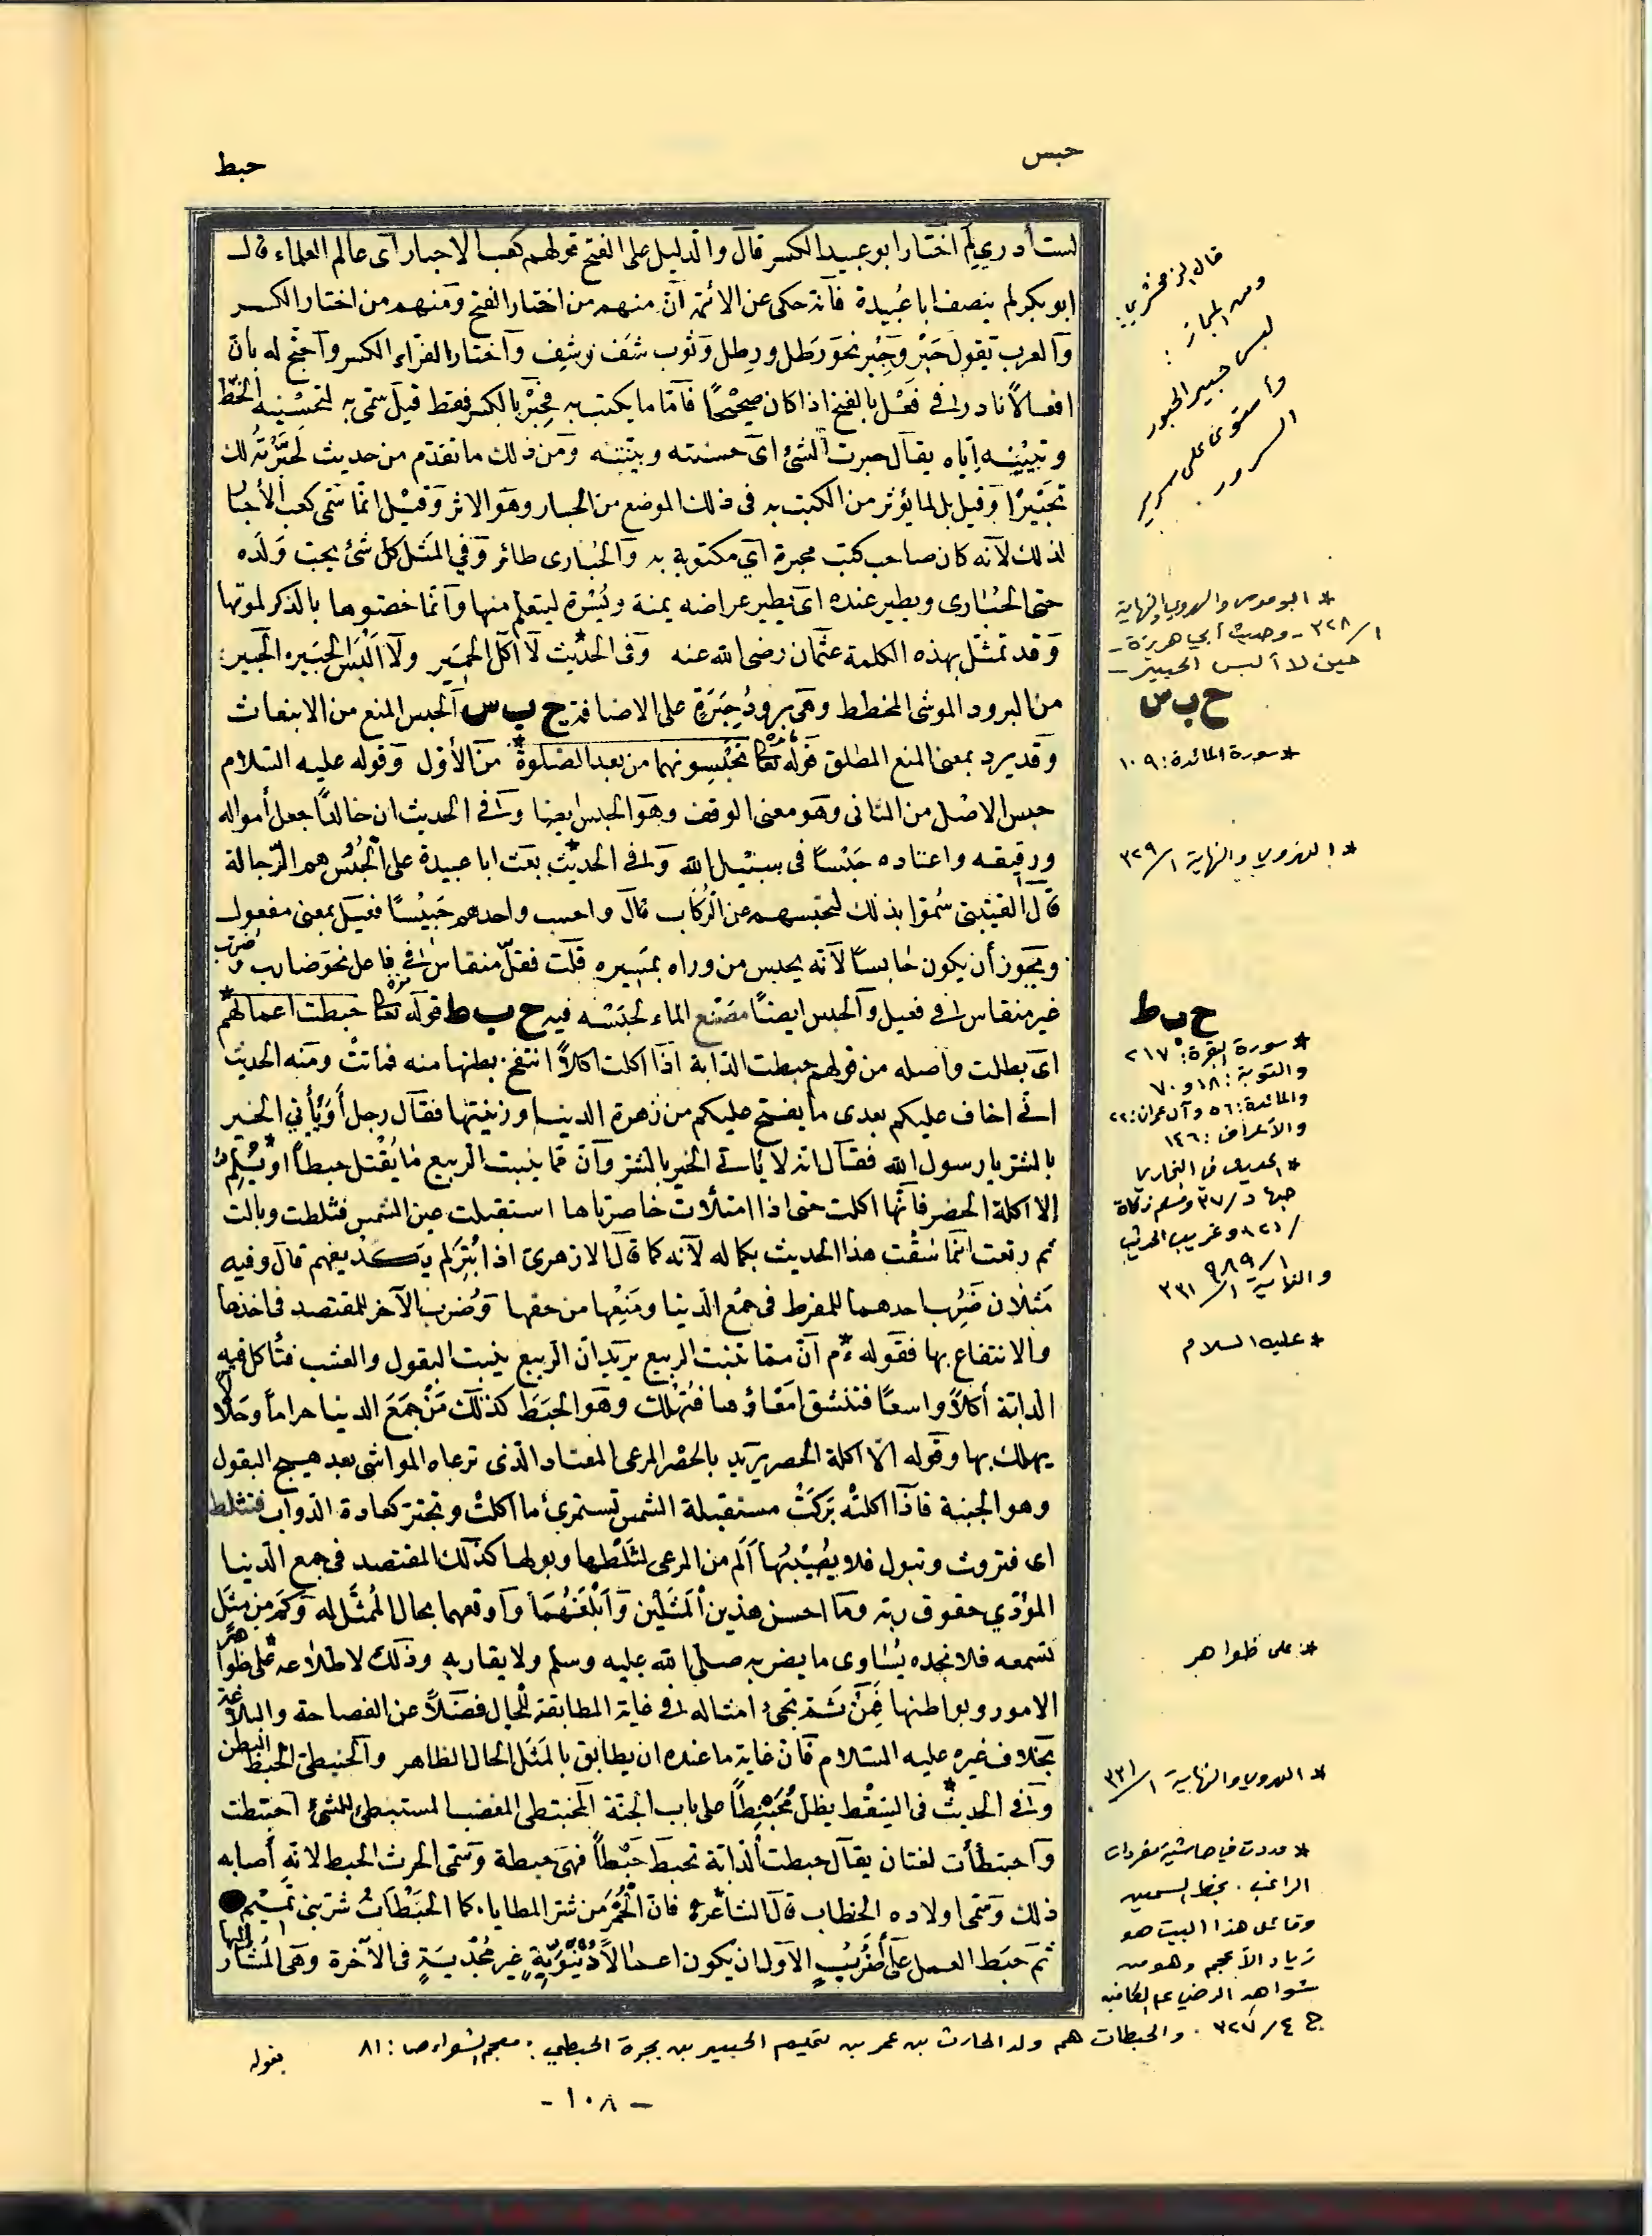 حبس
حبط
لست أدري لم اختار ابو عبيد الكسر قال والدليل على الفتح قولهم كعب الاحبار اى عالم العلماء قال
ابو بكر لم ينصف ابا عبيدة فانه حكى عن الائمة ان منهم من اختار الفتح ومنهم من اختار الكسر
والعرب تقول حَبْر وحِبْر نحو رَطل ورِطل وثوب شَف وشِف واختار الفراء الكسر واحتج له بان
افعالاً نادر فى فَعْل بالفتح اذا كان صحيحًا فاما ما يكتب به فحِبْر بالكسر فقط قيل سمى به لتحسينه الخط
وتبيينه اياه يقال حبرت الشئ اى حسنته وبينته ومن ذلك ما تقدم من حديث لحبّرته لك
تحبيرًا وقيل بل لما يؤثر من الكتب به فى ذلك الموضع من الحبار وهو الاثر وقيل انما سمى كعب الأحبار
لذلك لانه كان صاحب كتب محبرة اى مكتوبة به والحُبارى طائر وفي المَثل كل شئ يحب وَلَده
حتى الحُبارى ويطير عنده اى يطير عراضه يمنة ويَسْرة ليتعلم منها وانما خصوها بالذكر لموقها
وقد تمثل بهذه الكلمة عثمان رضى الله عنه وفى الحديث* لا آكل الخمير ولا اَلبَس الحَبير، الحبير:
من البرود الموشى المخطط وهى برودُ حِبَرَةٍ على الاضافة ح ب س الحبس المنع من الانبعاث
وقد يرد بمعنى المنع المطلق قوله تعالى تحبِسونهما من بعد الصلوة* من الأول وقوله عليه السلام
حبس الاصل من الثانى وهو معنى الوقف وهو الحبس ايضا وفى الحديث ان خالدًا جعل أمواله
ورقيقه واعتاده حَبْسًا فى سبيل الله وفى الحديث* بعث ابا عبيدة على الحُبْس هم الرّجالة
قال القتيبى سُمّوا بذلك لتحبسهم عن الرُكاب قال واحسب واحدهم حَبِيْسًا فعيل بمعنى مفعول
ويجوز أن يكون حابسًا لانه يحبس من وراه بمسيره قلت فُعّل منقاس فى فاعل نحو ضارب وضرب
غير منقاس فى فعيل والحبس ايضًا مصْنع الماء لحبَسْه فيه ح ب ط قوله تعالى حبطت اعمالهم*
اى بطلت واصله من قولهم حبطت الدابة اذا اكلت اكلاً انتفخ بطنها منه فماتتْ ومنه الحديث
انى اخاف عليكم بعدى ما يفتح عليكم من زهرة الدنيا وزينتها فقال رجل أَوَيَأتي الخير
بالشر يا رسول الله فقال انه لا يَأتى الخير بالشر وان مما ينبت الربيع ما يُقْتل حبطاً او يُلِمّ*
إلا اكلة الخضر فانها اكلت حتى اذا امتلأت خاصرتاها استقبلت عين الشمس فثلطت وبالت
ثم رتعت انما سُقْت هذا الحديث بكماله لانه كما قال الازهرى اذا بُتِرَ لم يكد يفهم قال وفيه
مَثلان ضَرُب احدهما للمفرط فى جمع الدنيا ومَنْعها من حقها وضُرب الآخر للمقتصد فى اخذها
والانتفاع بها فقوله ءم* ان مما ينبت الربيع يريد ان الربيع ينبت البقول والعشب فتأكل فيه
الدابة أكلاً واسعًا فتنشق امعاؤها فتهلك وهو الحبَط كذلك مَنْ جمَعَ الدنيا حراماً وحَلالًا
يهلك بها وقوله الا اكلة الخضر يريد بالخضر المرعى المعتاد الذى ترعاه المواشى بعد هيج البقول
وهو الجنبة فاذا اكلتْه بَركَتْ مستقبلة الشمس تستمرئ ما اكلتْ وتجتر كعادة الدواب فتثلط
اى فتروث وتبول فلا يُصيْبُها اَلم من المرعى لثلْطها وبولها كذلك المقتصد فى جمع الدنيا
المؤدي حقوق ربه وما احسن هذين المَثَلَيْن وابْلَغَهُمَا واوقعهما بحال المُمثَّل له وكم من مثَل
تسمعه فلا تجده يُساوى ما يضربه صلى الله عليه وسلم ولا يقاربه وذلك لاطلاعه على* ظواهر
الامور وبواطنها فمِنْ ثَمَّ تجئ امثاله فى غاية المطابقة للحال فضلاً عن الفصاحة والبلاغة
بخلاف غيره عليه السلام فان غاية ما عنده ان يطابق بالمَثَل الحال الظاهر والحبنطى الحبط البطن
وفى الحديث* فى السقْط يظل مُحبَنْطِئاً على باب الجنة المحبنطى المغضب المستبطئ للشئ احبنطت
واحبنطأت لغتان يقال حبطت الدابة تحبط حَبْطاً فهى حبطة وسمى الحرث الحبط لانه أصابه
ذلك وسمى اولاده الحبطات قال الشاعر* فان الحُمُر من شر المطايا، كما الحَبِطَاتُ شر بنى تميم
ثم حَبَط العمل على أضْرُبٍ الاول ان يكون اعمالاً دُنْيَويّةٍ غير مُجْدِيَةٍ فى الآخرة وهى المُشار اليها
بقوله
قال الزمخشري:
ومن المجاز:
لبس حبير الحبور
واستوى على سرير
السرور.
* ابو موسى والهروي والنهاية
١/٣٢٨ ـ وحديث أبي هريرة ـ
حين لا ألبس الحبير ـ
ح ب س
* سورة المائدة: ١٠٩
* الهروي والنهاية ١/٣٢٩
ح ب ط
* سورة البقرة: ٢١٧
والتوبة: ١٨ و ٧٠
والمائدة: ٥٦ وآل عمران: ٢٢
والأعراف: ١٤٦
* الحديث في البخاري
جهاد/٣٧ ومسلم زكاة
/١٢١ وغريب الحديث
١/٨٩
والنهاية ١/٣٣١
* عليه السلام
* على ظواهر
* الهروي والنهاية ١/٣٣١
* وردت في حاشية مفردات
الراغب. بخط السمين
وقائل هذا البيت هو
زياد الأعجم وهو من
شواهد الرضي على الكافية
ج ٤/٣٢٧. والحبطات هم ولد الحارث بن عمر بن تميم الحبير بن بجرة الحبطي: معجم الشعراء ص: ٨١
ـ ١٠٨ ـ